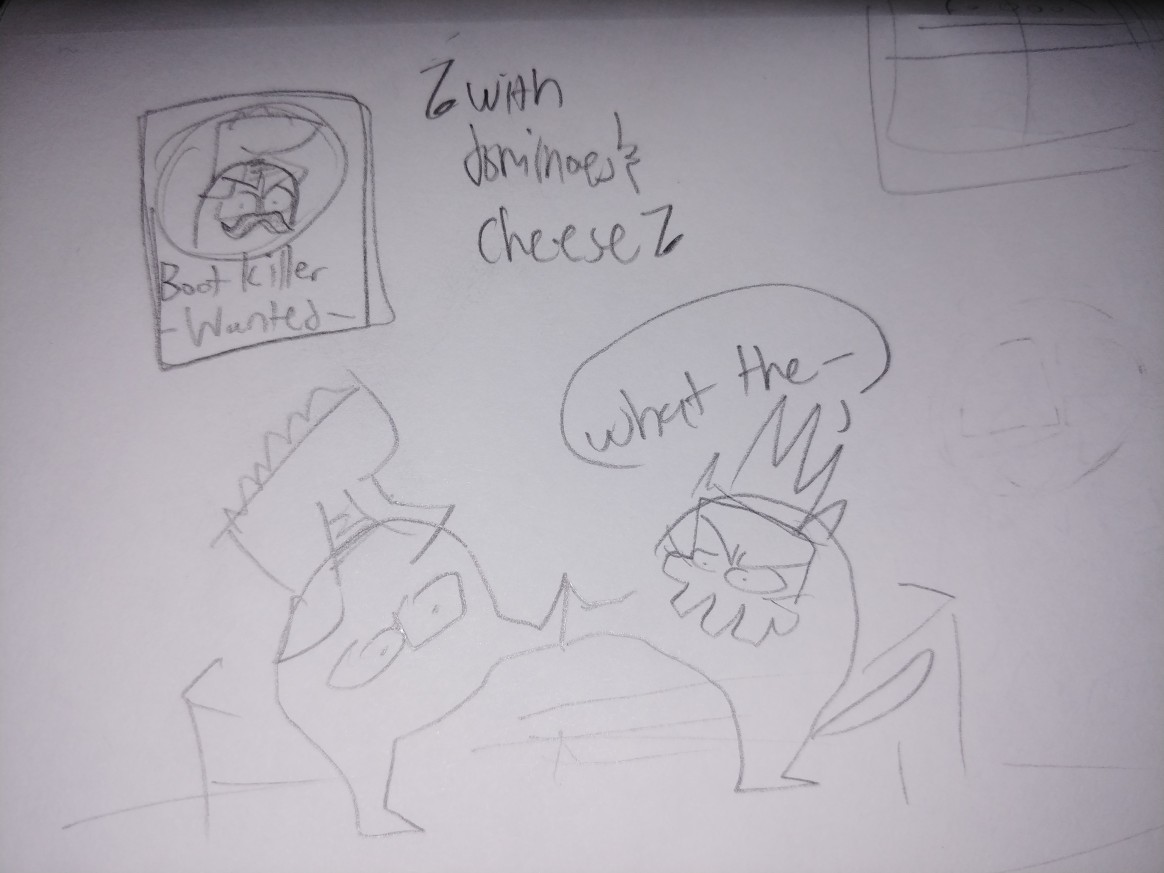 Boot killer
-Wanted-
with
dominoes &
cheese
what the-